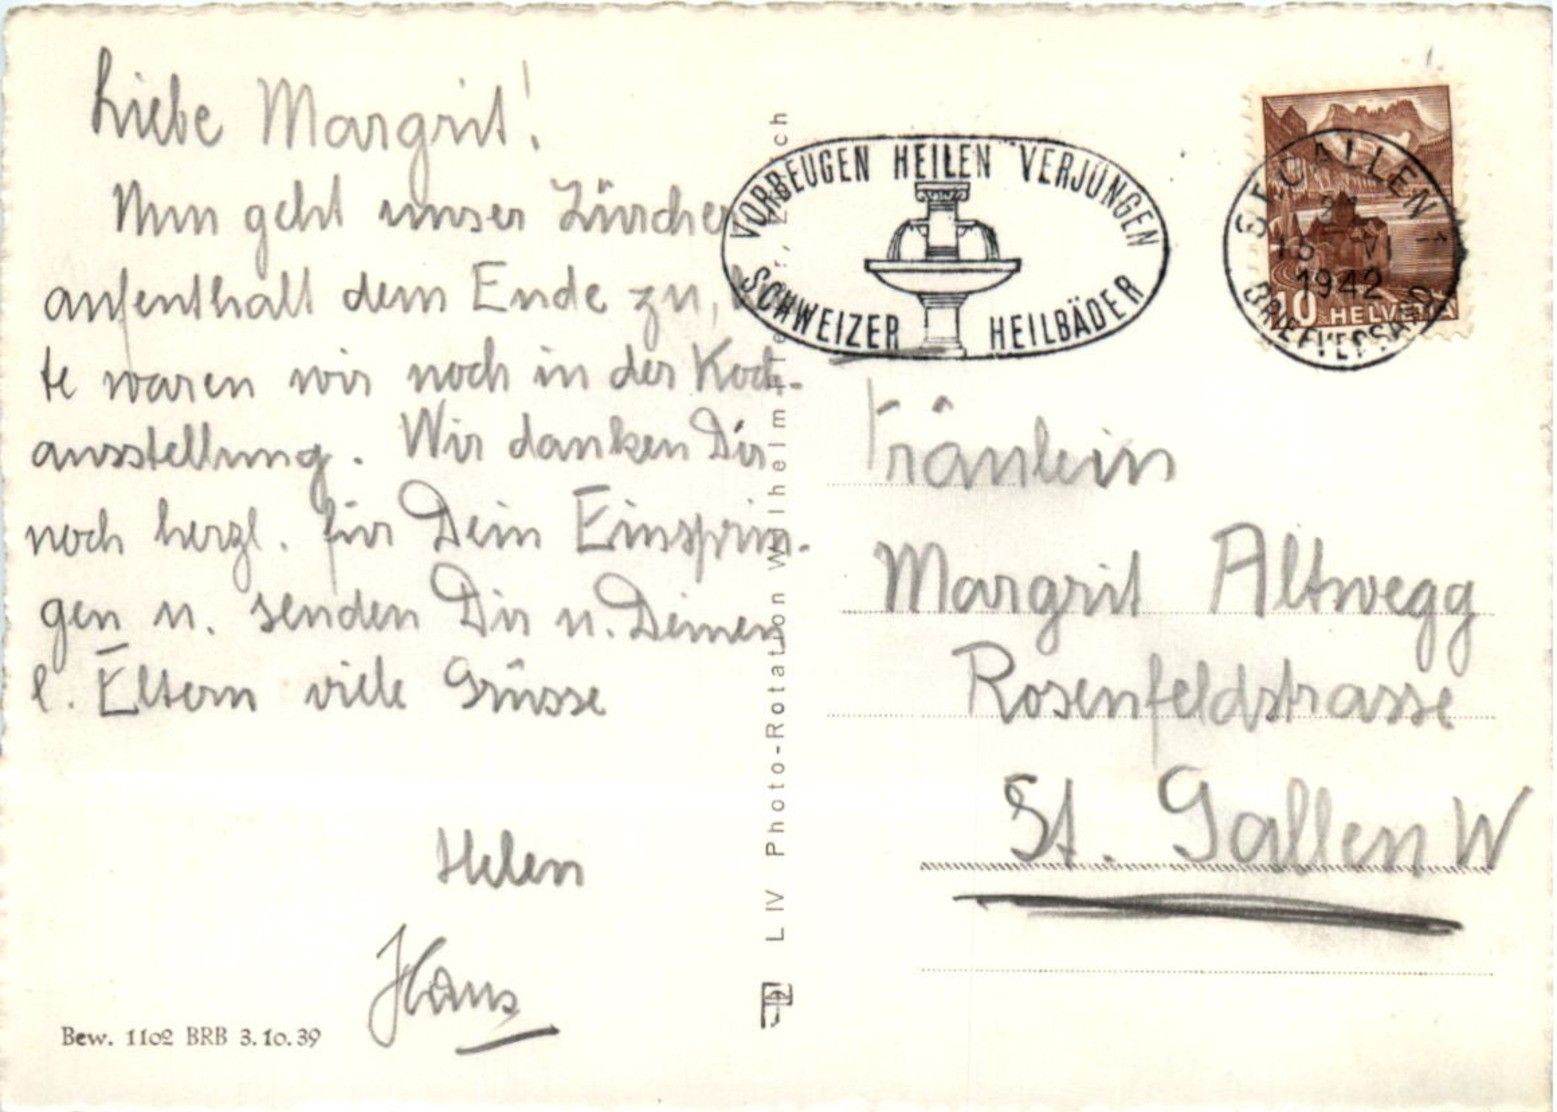 Liebe Margrit!
Nun geht unser Zürcher
aufenthalt dem Ende zu,
te waren wir noch in der Koch-
ausstellung. Wir danken Dir
noch herzl. für Dein Einsprin-
gen u. senden Dir u. Deinen
l. Eltern viele Grüsse
Helen
Hans
Bew. 1102 BRB 3.10.39
LIV Photo-Rotation Wilhelm
VORBEUGEN HEILEN VERJÜNGEN
SCHWEIZER HEILBÄDER
ST. GALLEN 1
VI
1942
BRIEFVERSAND
10 HELVETIA
Fräulein
Margrit Altwegg
Rosenfeldstrasse
St. Gallen W